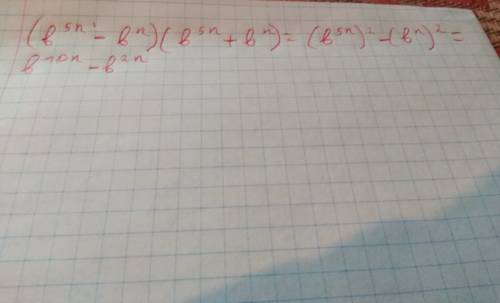 (b^{5n} - b^n)(b^{5n} + b^n) = (b^{5n})^2 - (b^n)^2 =
b^{10n} - b^{2n}